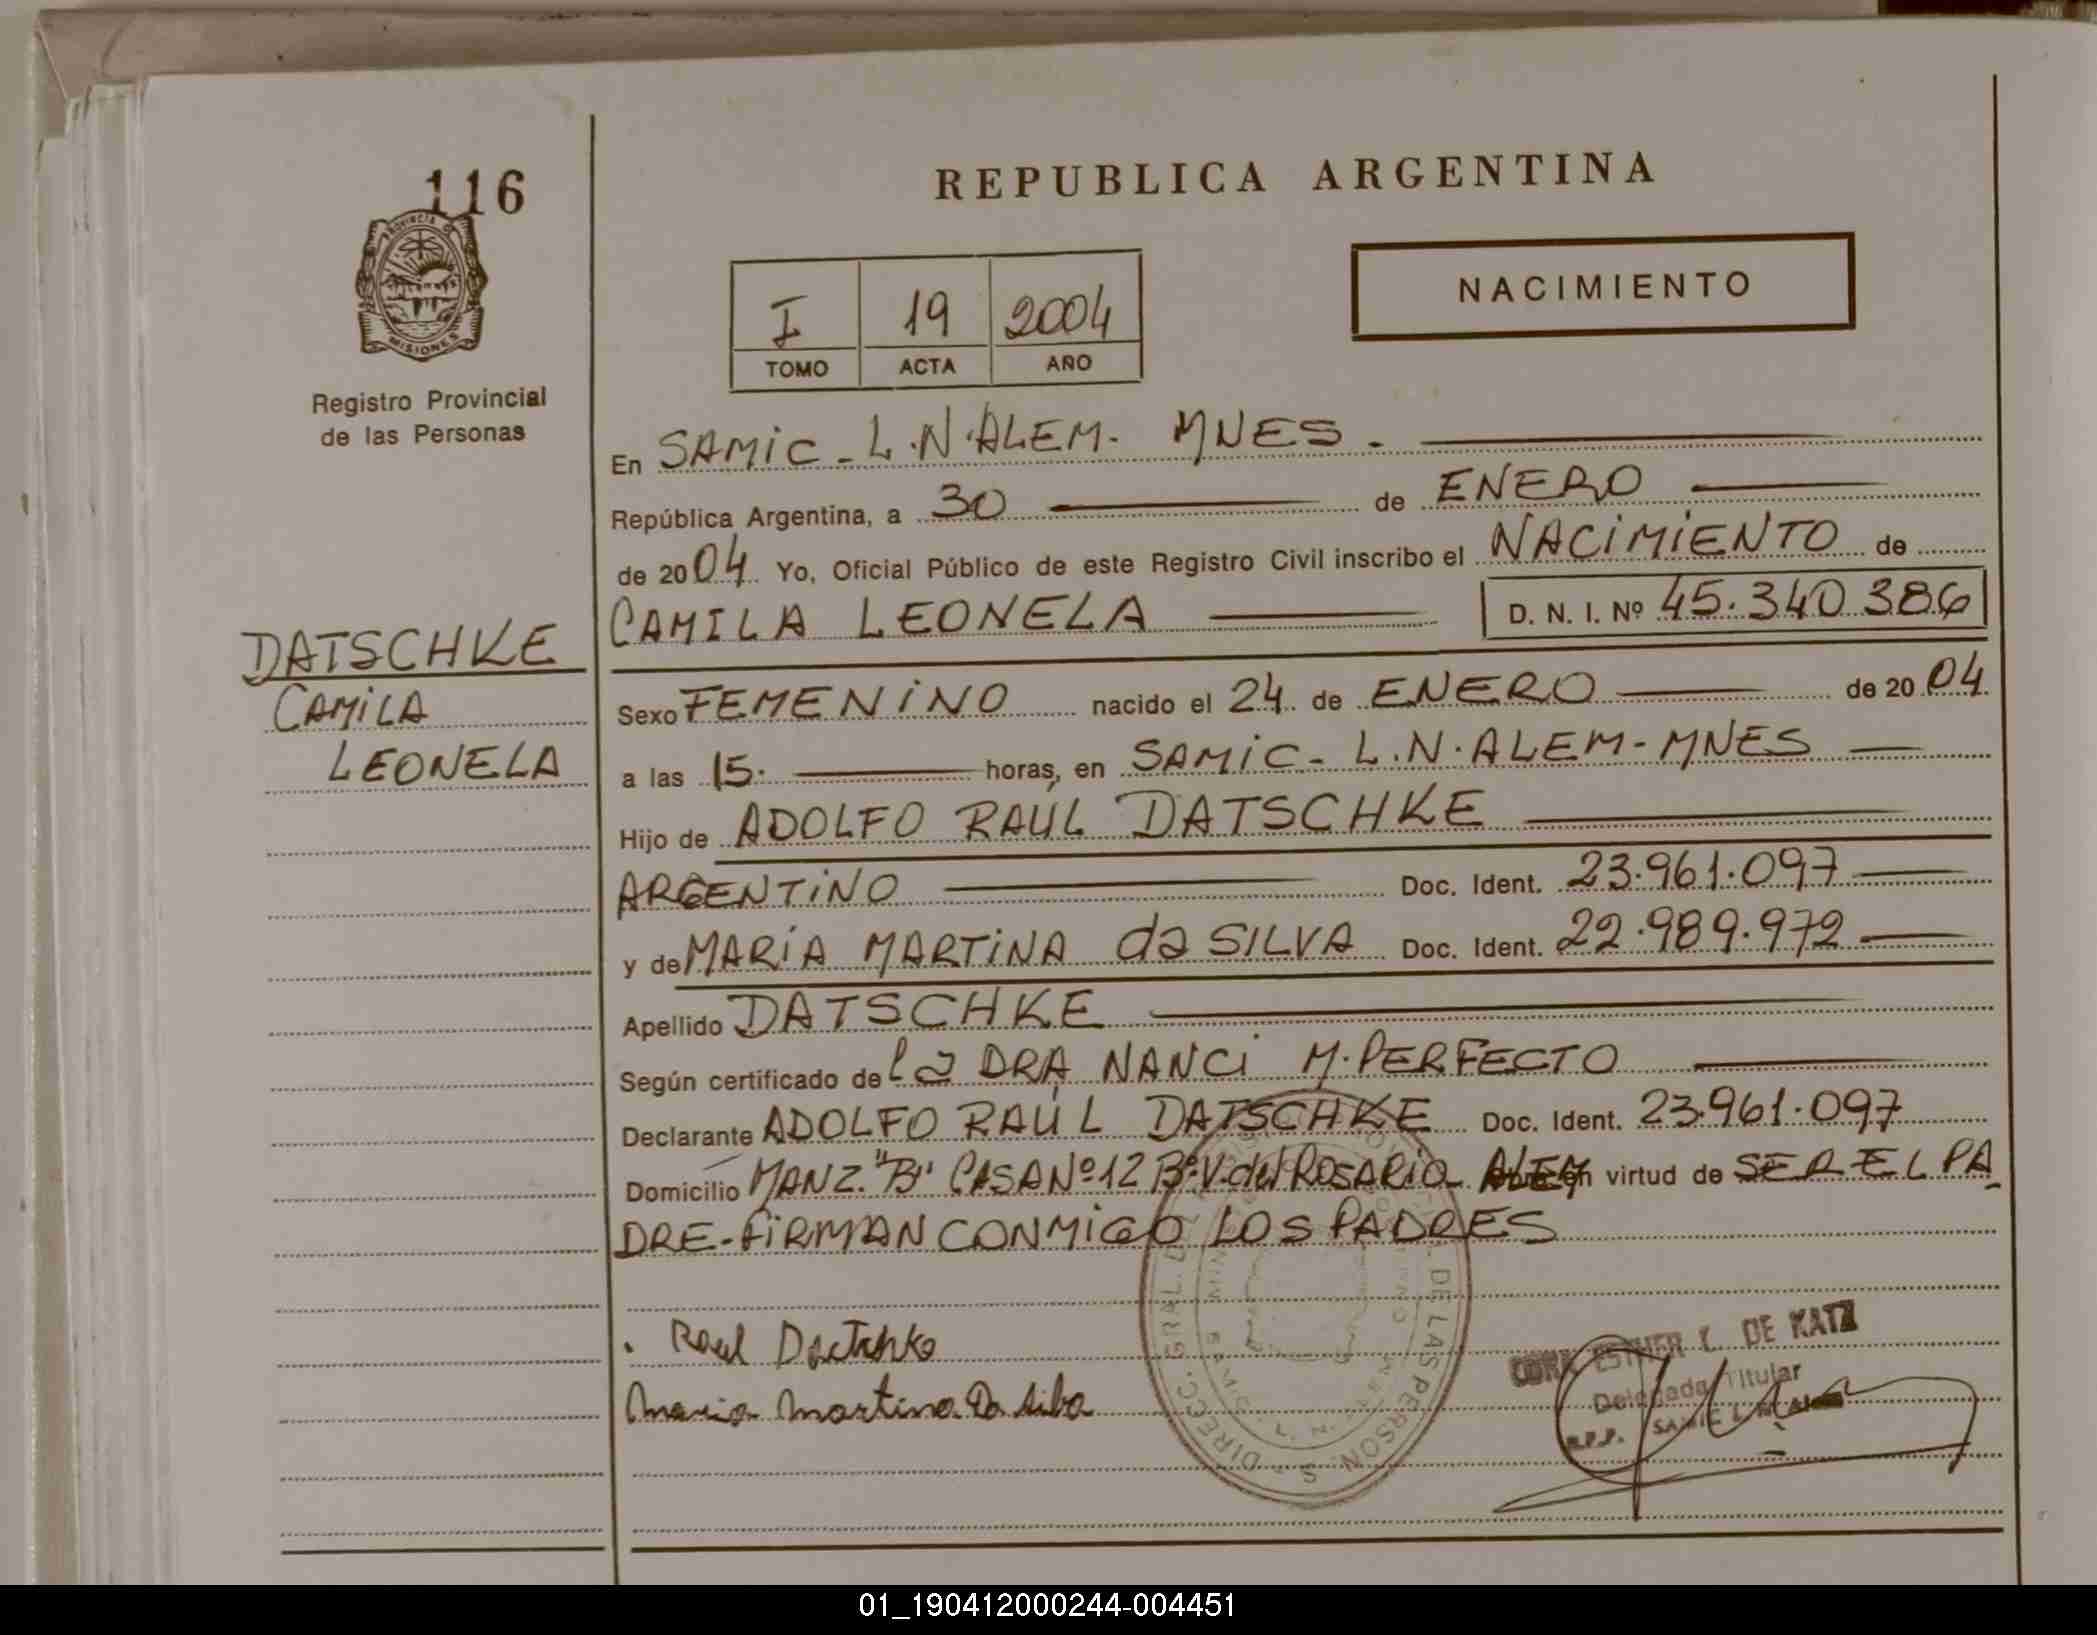 116
PROVINCIA DE
MISIONES
Registro Provincial
de las Personas
DATSCHKE
CAMILA
LEONELA
REPUBLICA ARGENTINA
NACIMIENTO
I 19 2004
TOMO ACTA AÑO
En SAMIC - L.N. ALEM - MNES -
República Argentina, a 30 de ENERO
de 2004 Yo, Oficial Público de este Registro Civil inscribo el NACIMIENTO de
CAMILA LEONELA D. N. I. Nº 45.340.386
Sexo FEMENINO nacido el 24 de ENERO de 2004
a las 15. horas, en SAMIC - L.N. ALEM - MNES
Hijo de ADOLFO RAÚL DATSCHKE
ARGENTINO Doc. Ident. 23.961.097
y de MARÍA MARTINA da SILVA Doc. Ident. 22.989.972
Apellido DATSCHKE
Según certificado de la DRA NANCI M. PERFECTO
Declarante ADOLFO RAÚL DATSCHKE Doc. Ident. 23.961.097
Domicilio MANZ. "B" CASA Nº 12 Bº V. del ROSARIO - ALEM virtud de SER EL PA
DRE - FIRMAN CONMIGO LOS PADRES
Raul Datschke
Maria Martina Da Silva
DIRECC. GRAL. DE LAS PERSONAS
ESTHER L. DE KATZ
Delegada Titular
R.P.P. SAMIC L. N. Alem
01_190412000244-004451